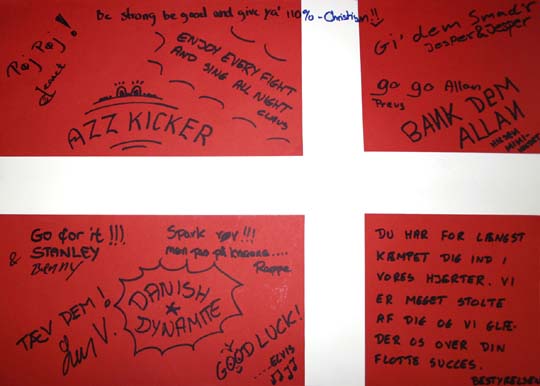 Be strong be good and give ya' 110% - Christian!!
Pøj Pøj!
Jeanet
ENJOY EVERY FIGHT
AND SING ALL NIGHT
CLAUS
AZZ KICKER
Gi' dem Smæk
Jesper & Jesper
go go Allan
Preus
BANK DEM
ALLAN
Go for it!!!
& STANLEY
Benny
Spark røv!!!
men pas på knæene....
Rappe
TÆV DEM!
DANISH
DYNAMITE
GOOD LUCK!
....ELVIS
DU HAR FOR LÆNGST
KÆMPET DIG IND I
VORES HJERTER. VI
ER MEGET STOLTE
AF DIG OG VI GLÆ-
DER OS OVER DIN
FLOTTE SUCCES.
BESTYRELSEN